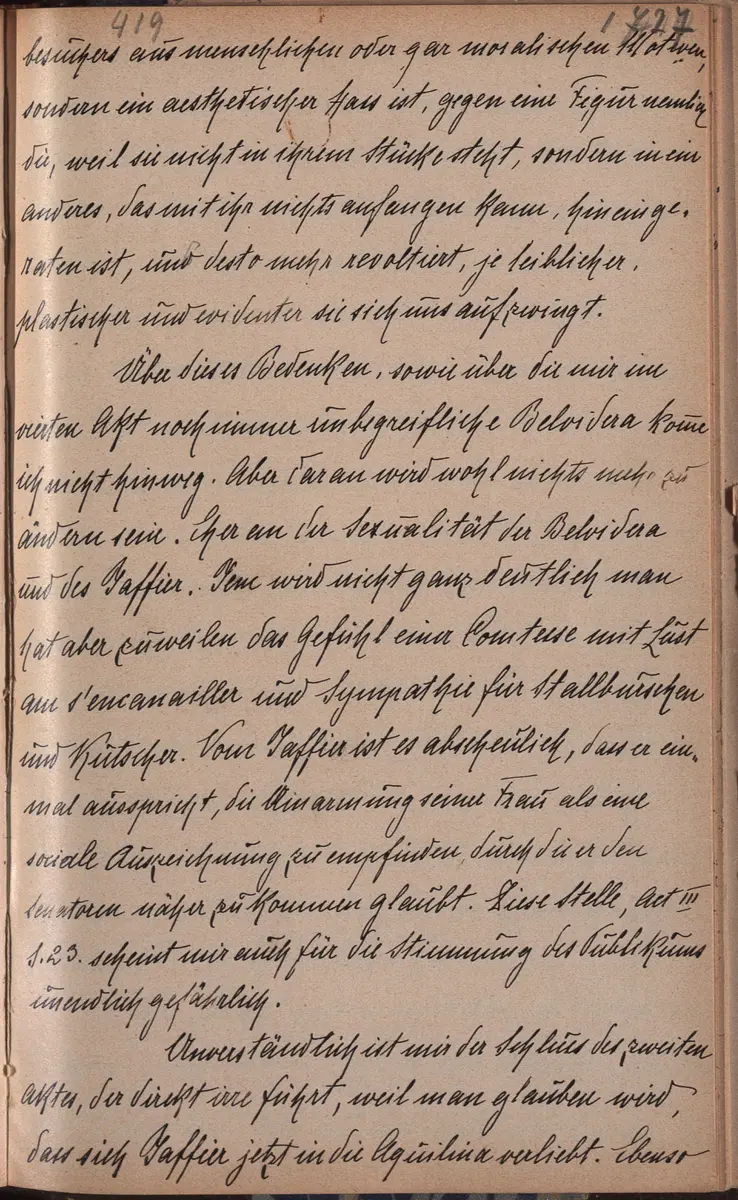 419 1727
besuchers aus menschlichen oder gar moralischen Motiven,
sondern ein aesthetischer Hass ist, gegen eine Figur nemlich
die, weil sie nicht in ihrem Stücke steht, sondern in ein
anderes, das mit ihr nichts anfangen kann, hineinge-
raten ist, und desto mehr revoltiert, je leiblicher,
plastischer und evidenter sie sich uns aufzwingt.
Über dieses Bedenken, sowie über die mir im
vierten Akt noch immer unbegreifliche Belvidera kome
ich nicht hinweg. Aber daran wird wohl nichts mehr zu
ändern sein. Eher an der Sexualität der Belvidera
und des Jaffier. Jene wird nicht ganz deutlich man
hat aber zuweilen das Gefühl einer Comtesse mit Lust
am s'encanailler und Sympathie für Stallburschen
und Kutscher. Vom Jaffier ist es abscheulich, dass er ein-
mal ausspricht, die Umarmung seiner Frau als eine
sociale Auszeichnung zu empfinden, durch die er den
Senatoren näher zu kommen glaubt. Diese Stelle, Act III
S. 23. scheint mir auch für die Stimmung des Publikums
unendlich gefährlich.
Unverständlich ist mir der Schluss des zweiten
Aktes, der direkt irre führt, weil man glauben wird,
dass sich Jaffier jetzt in die Aquilina verliebt. Ebenso